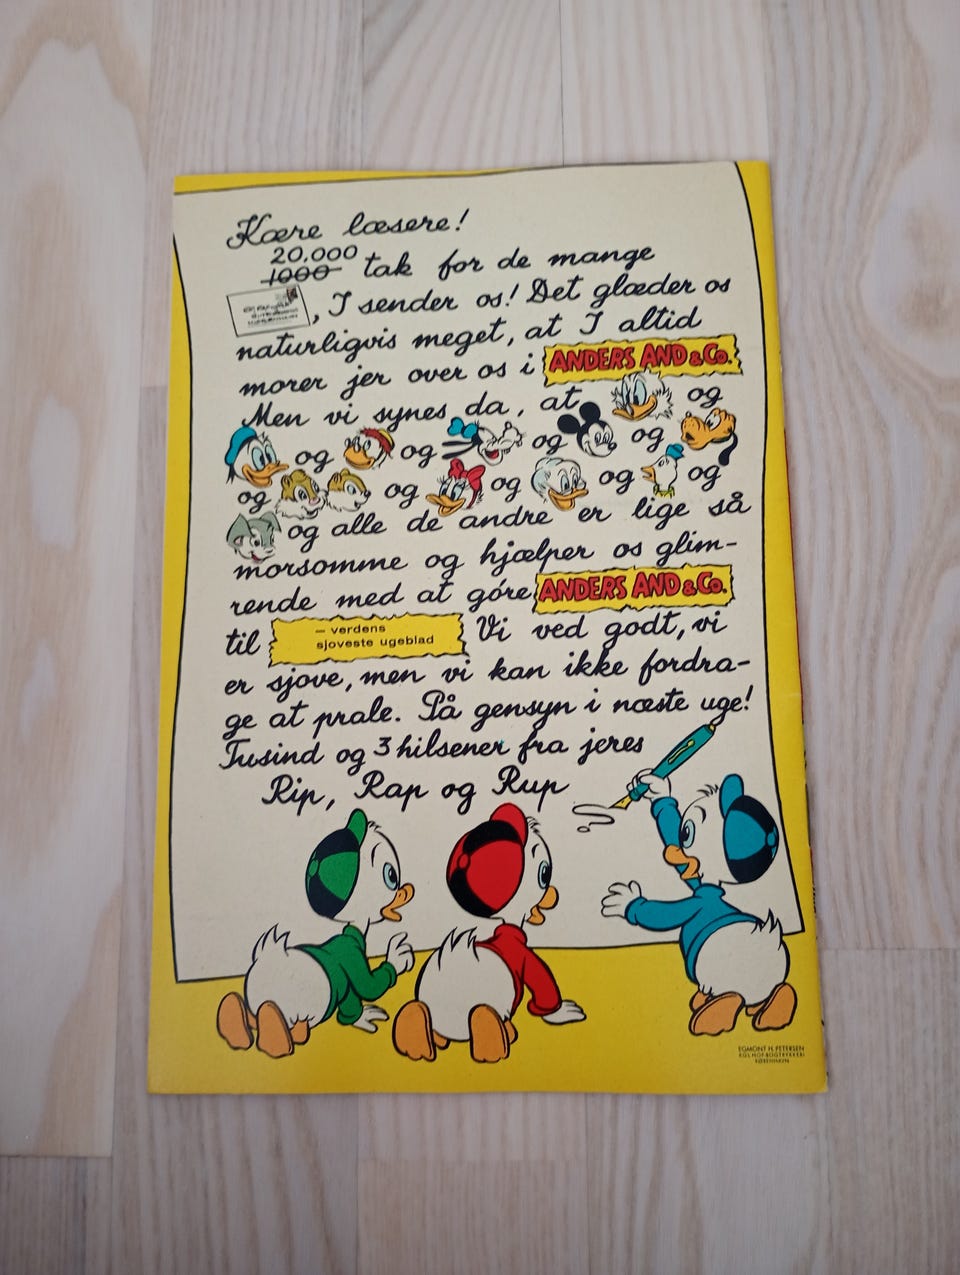 Kære læsere!
20.000
1000 tak for de mange
, I sender os! Det glæder os
naturligvis meget, at I altid
morer jer over os i ANDERS AND & Co.
Men vi synes da, at og
og og og og
og og og og og
og alle de andre er lige så
morsomme og hjælper os glim-
rende med at góre ANDERS AND & Co.
til – verdens sjoveste ugeblad Vi ved godt, vi
er sjove, men vi kan ikke fordra-
ge at prale. På gensyn i næste uge!
Tusind og 3 hilsener fra jeres
Rip, Rap og Rup
EGMONT H. PETERSEN
KGL. HOF-BOGTRYKKERI
KØBENHAVN